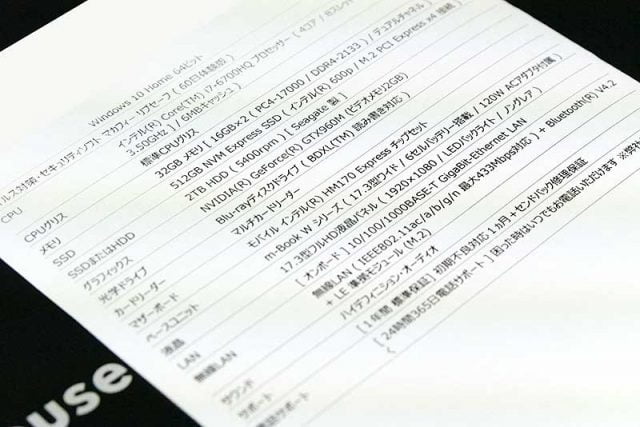 Windows 10 Home 64ビット
ルス対策・セキュリティソフト マカフィー リブセーフ ( 60日体験版 )
CPU インテル(R) Core(TM) i7-6700HQ プロセッサー ( 4コア / 8スレッド
3.50GHz ] / 6MBキャッシュ )
CPUグリス 標準CPUグリス
メモリ 32GB メモリ [ 16GB×2 ( PC4-17000 / DDR4-2133 ) / デュアルチャネル ]
SSD 512GB NVM Express SSD ( インテル(R) 600p / M.2 PCI Express x4 接続 )
SSDまたはHDD 2TB HDD ( 5400rpm ) [ Seagate 製 ]
グラフィックス NVIDIA(R) GeForce(R) GTX960M ( ビデオメモリ2GB )
光学ドライブ Blu-rayディスクドライブ ( BDXL(TM) 読み書き対応 )
カードリーダー マルチカードリーダー
マザーボード モバイル インテル(R) HM170 Express チップセット
ベースユニット m-Book W シリーズ ( 17.3型ワイド / 6セルバッテリー搭載 / 120W ACアダプタ付属 )
液晶 17.3型フルHD液晶パネル ( 1920×1080 / LEDバックライト / ノングレア )
LAN [ オンボード ] 10/100/1000BASE-T GigaBit-Ethernet LAN
無線LAN 無線LAN ( IEEE802.11ac/a/b/g/n 最大433Mbps対応 ) + Bluetooth(R) V4.2
+ LE 準拠モジュール (M.2)
サウンド ハイデフィニション・オーディオ
サポート [ 1年間 標準保証 ] 初期不良対応1ヵ月+センドバック修理保証
電話サポート [ 24時間365日電話サポート ] 困った時はいつでもお電話いただけます ※弊社
ouse